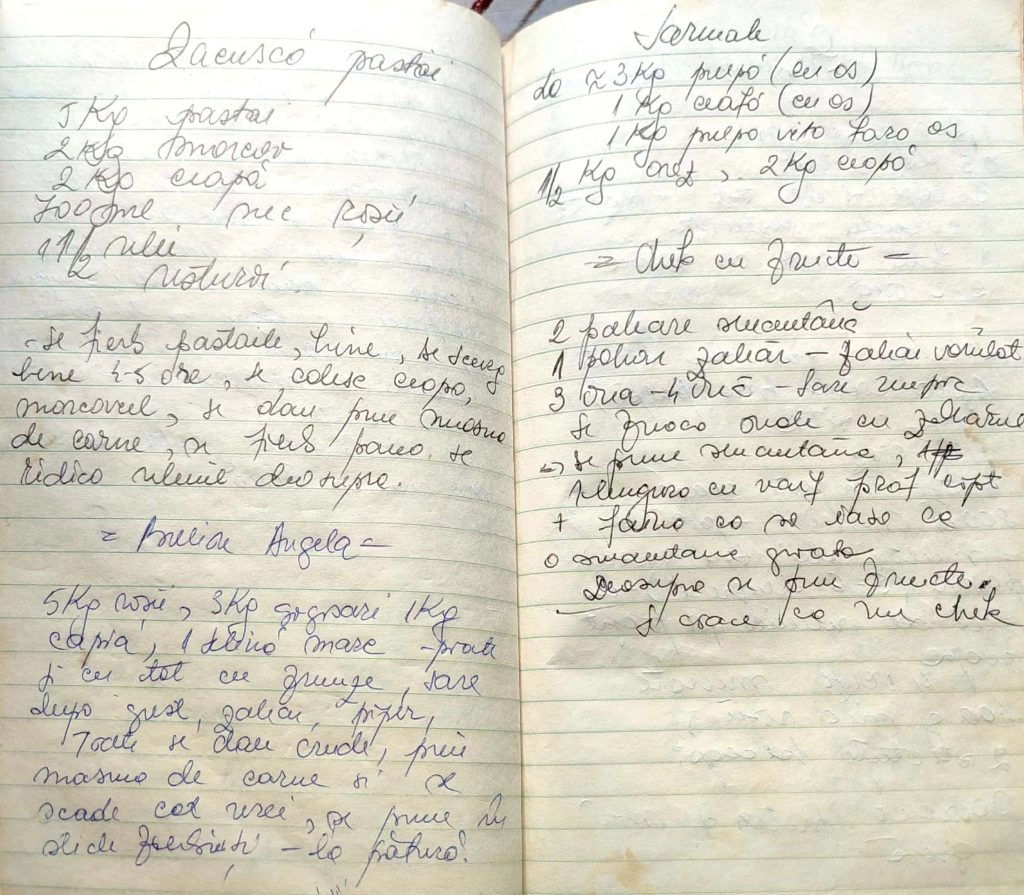 Zacuscă pastăi
5 Kg pastăi
2 Kg morcov
2 Kg ceapă
700 gme suc roșii
1 1/2 ulei
usturoi.
- Se fierb pastăile, bine, se scurg
bine 4-5 ore, se călesc ceapa,
morcovul, se dau prin mașina
de carne, se fierb până se
ridică uleiul deasupra.
= Bulion Angela =
5 Kg roșii, 3 Kg gogoșari 1 Kg
capia, 1 țelină mare
și cu tot cu frunze, sare
după gust, zahăr, piper,
Toate se dau crude, prin
mașina de carne și se
scade cât vrei, se pune în
sticle fierbinți - la pătură.
Sarmale
la ≈ 3 Kg pulpă (cu os)
1 Kg ceafă (cu os)
1 Kg pulpă vită fără os
1/2 Kg orez, 2 Kg ceapă
= Chek cu fructe =
2 pahare smântână
1 pahar zahăr - zahăr vanilat
3 ouă - 4 ouă - sare
Se freacă ouăle cu zahărul
se pune smântână,
1 lingură cu vârf praf copt
+ făină ca să iasă ca
o smântână groasă
Deasupra se pun fructe.
și coace ca un chek